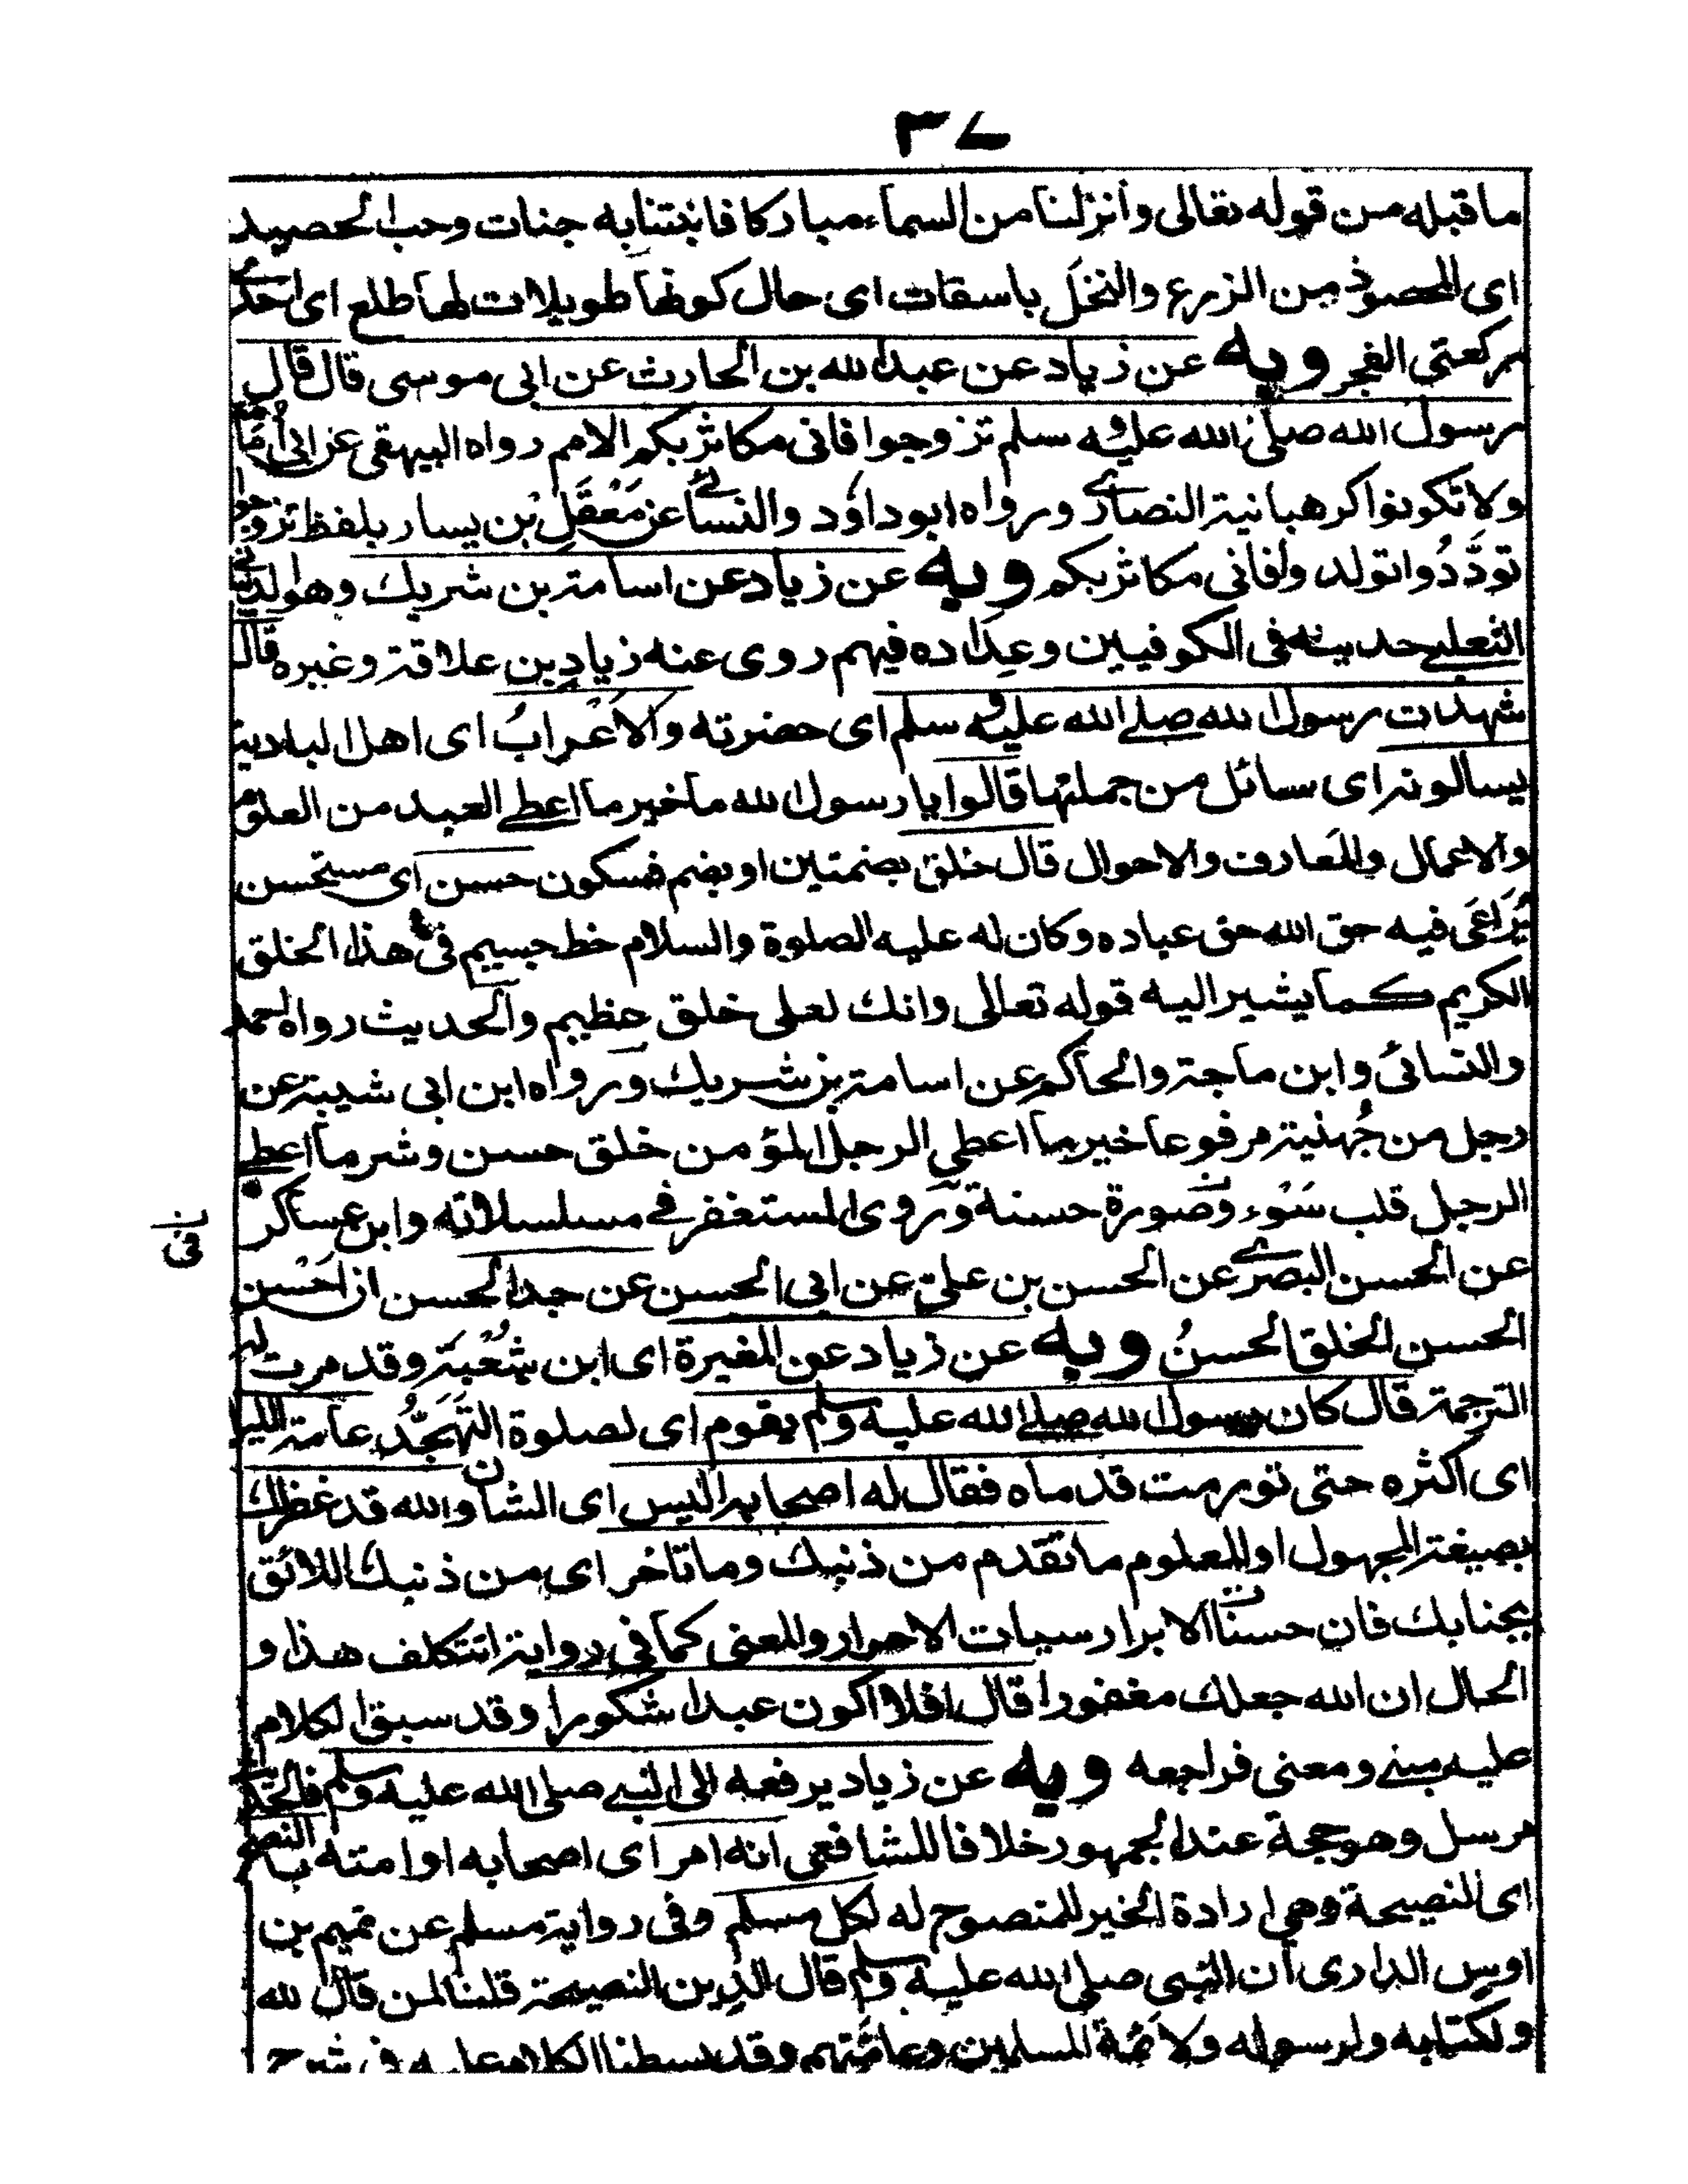 ٣٧
ما قبله من قوله تعالى وأنزلنا من السماء مباركا فانبتنا به جنات وحب الحصيد
اى المحصود من الزرع والنخل باسقات اى حال كونها طويلات لها طلع اى
ركعتى الفجر وبه عن زياد عن عبد الله بن الحارث عن ابى موسى قال قال
رسول الله صلى الله عليه و سلم تزوجوا فانى مكاثر بكم الامم رواه البيهقى عن ابى
ولا تكونوا كرهبانية النصارى ورواه ابو داؤد والنسائى عن مَعْقَلِ بْن يسار بلفظ تزوجوا
تودَّدُوا تولد وا فانى مكاثر بكم وبه عن زياد عن اسامة بن شريك وهو
الثعلبى حديثه فى الكوفيين وعِدَاده فيهم روى عنه زياد بن علاقة وغيره قال
شهدت رسول الله صلى الله عليه و سلم اى حضرته والاَعْرابُ اى اهل البادية
يسالونه اى سائل من جملتها قالوا يا رسول الله ما خير ما اعطى العبد من العلوم
والاعمال والمعارف والاحوال قال خلق بضمتين او بضم فسكون حسن اى مستحسن
يُرَاعَى فيه حق الله حق عباده وكان له عليه الصلوة والسلام خط جسيم فى هذا الخلق
الكريم كما يشير اليه قوله تعالى وانك لعلى خلق عظيم والحديث رواه احمد
والنسائى وابن ماجة والحاكم عن اسامة بن شريك ورواه ابن ابى شيبة عن
رجل من جُهنية مرفوعا خير ما اعطى الرجل المؤمن خلق حسن وشر ما اعطى
الرجل قلب سَوْء فى صورة حسنة وروى المستغفر فى مسلسلاته وابن عساكر
فى
عن الحسن البصرى عن الحسن بن على عن ابى الحسن عن جد الحسن ان احْسن
الحسن الخلق الحسنُ وبه عن زياد عن المغيرة اى ابن شُعْبَة وقد مرت له
الترجمة قال كان رسول الله صلى الله عليه وسلم يقوم اى لصلوة التهَجُّد عامة الليل
اى اكثره حتى تورمت قدماه فقال له اصحابه اليس اى الشان والله قد غفر لك
بصيغة المجهول او المعلوم ما تقدم من ذنبك وما تاخر اى من ذنبك اللائق
بجنابك فان حسنات الابرار سيات الاحرار والمعنى كما فى رواية اتتكلف هذا و
الحال ان الله جعلك مغفورا قال افلا اكون عبدا شكورا وقد سبق الكلام
عليه مبنى ومعنى فراجعه وبه عن زياد يرفعه الى النبى صلى الله عليه وسلم
مرسل وهو حجة عند الجمهور خلافا للشافعى انه امر اى اصحابه او امته بالنصح
اى النصيحة وهى ارادة الخير للمنصوح له لكل مسلم وفى رواية مسلم عن تميم بن
اوس الدارى ان النبى صلى الله عليه وسلم قال الدين النصيحة قلنا لمن قال لله
ولكتابه ولرسوله ولائمة المسلمين وعامتهم وقد بسطنا الكلام عليه فى شرح